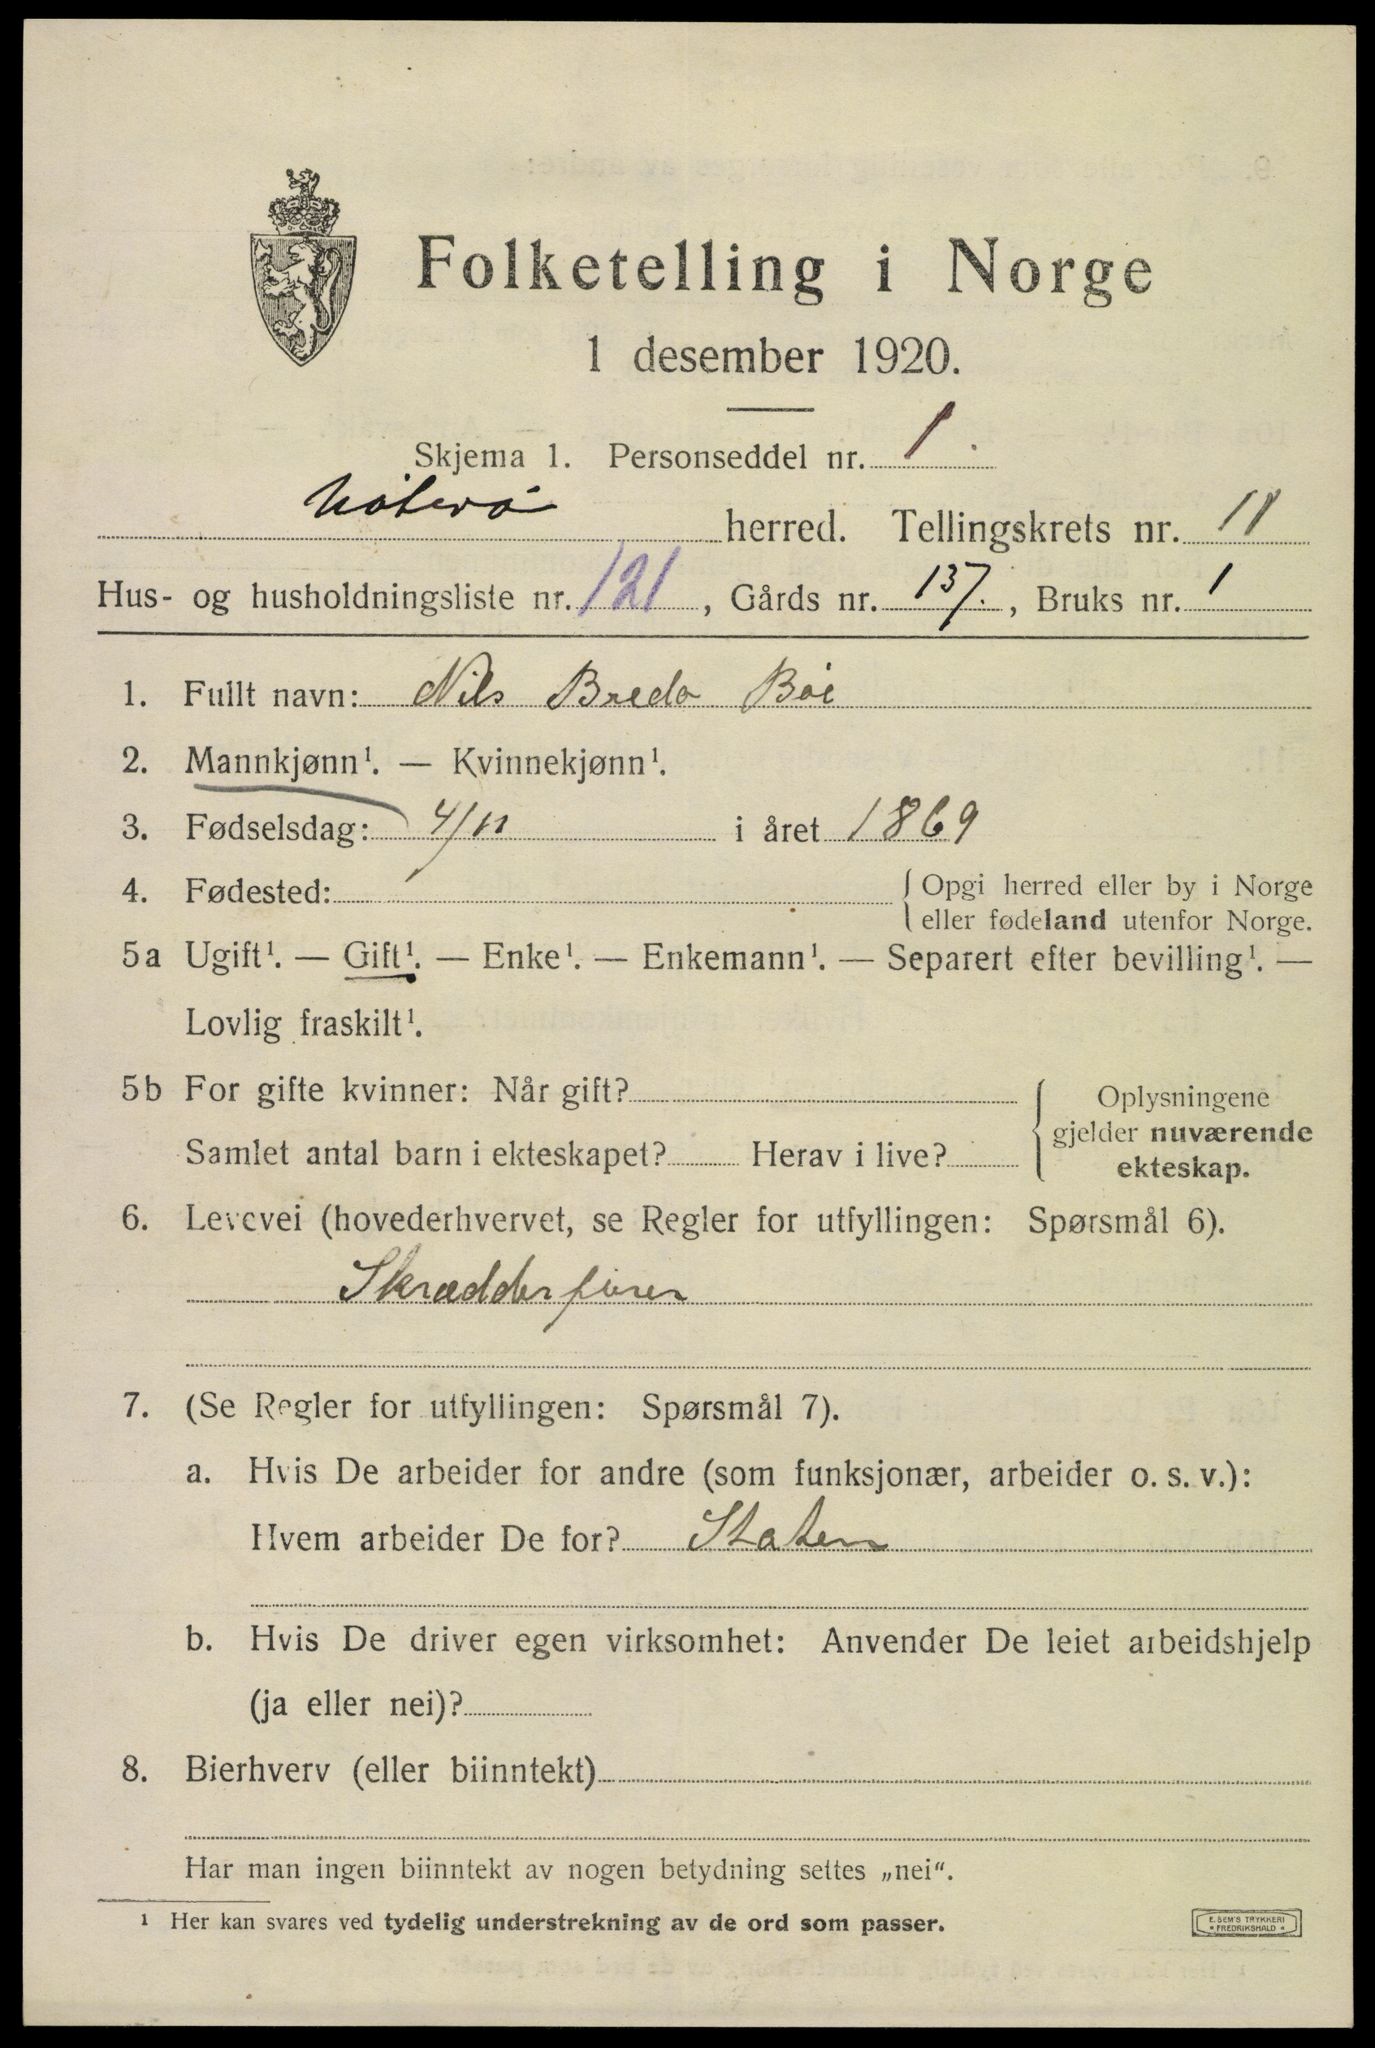 Folketelling i Norge
1 desember 1920.
Skjema 1. Personseddel nr. 1.
Nøterø herred. Tellingskrets nr. 11
Hus- og husholdningsliste nr. 121, Gårds nr. 137., Bruks nr. 1
1. Fullt navn: Nils Breda Bøe
2. Mannkjønn¹. — Kvinnekjønn¹.
3. Fødselsdag: 4/11 i året 1869
4. Fødested: { Opgi herred eller by i Norge
eller fødeland utenfor Norge.
5a Ugift¹. — Gift¹. — Enke¹. — Enkemann¹. — Separert efter bevilling¹. —
Lovlig fraskilt¹.
5b For gifte kvinner: Når gift? { Oplysningene
gjelder nuværende
Samlet antal barn i ekteskapet? Herav i live? ekteskap.
6. Levevei (hovederhvervet, se Regler for utfyllingen: Spørsmål 6).
Skrædder
7. (Se Regler for utfyllingen: Spørsmål 7).
a. Hvis De arbeider for andre (som funksjonær, arbeider o. s. v.):
Hvem arbeider De for? Staten
b. Hvis De driver egen virksomhet: Anvender De leiet arbeidshjelp
(ja eller nei)?
8. Bierhverv (eller biinntekt)
Har man ingen biinntekt av nogen betydning settes „nei“.
¹ Her kan svares ved tydelig understrekning av de ord som passer.
E. SEM'S TRYKKERI
* FREDRIKSHALD *